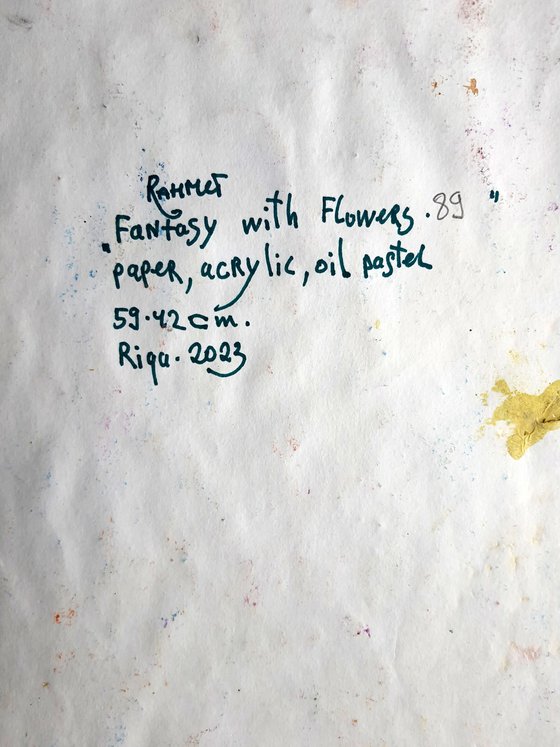 RAHMET
"Fantasy with Flowers.89"
paper, acrylic, oil pastel
59.42 cm.
Riga. 2023